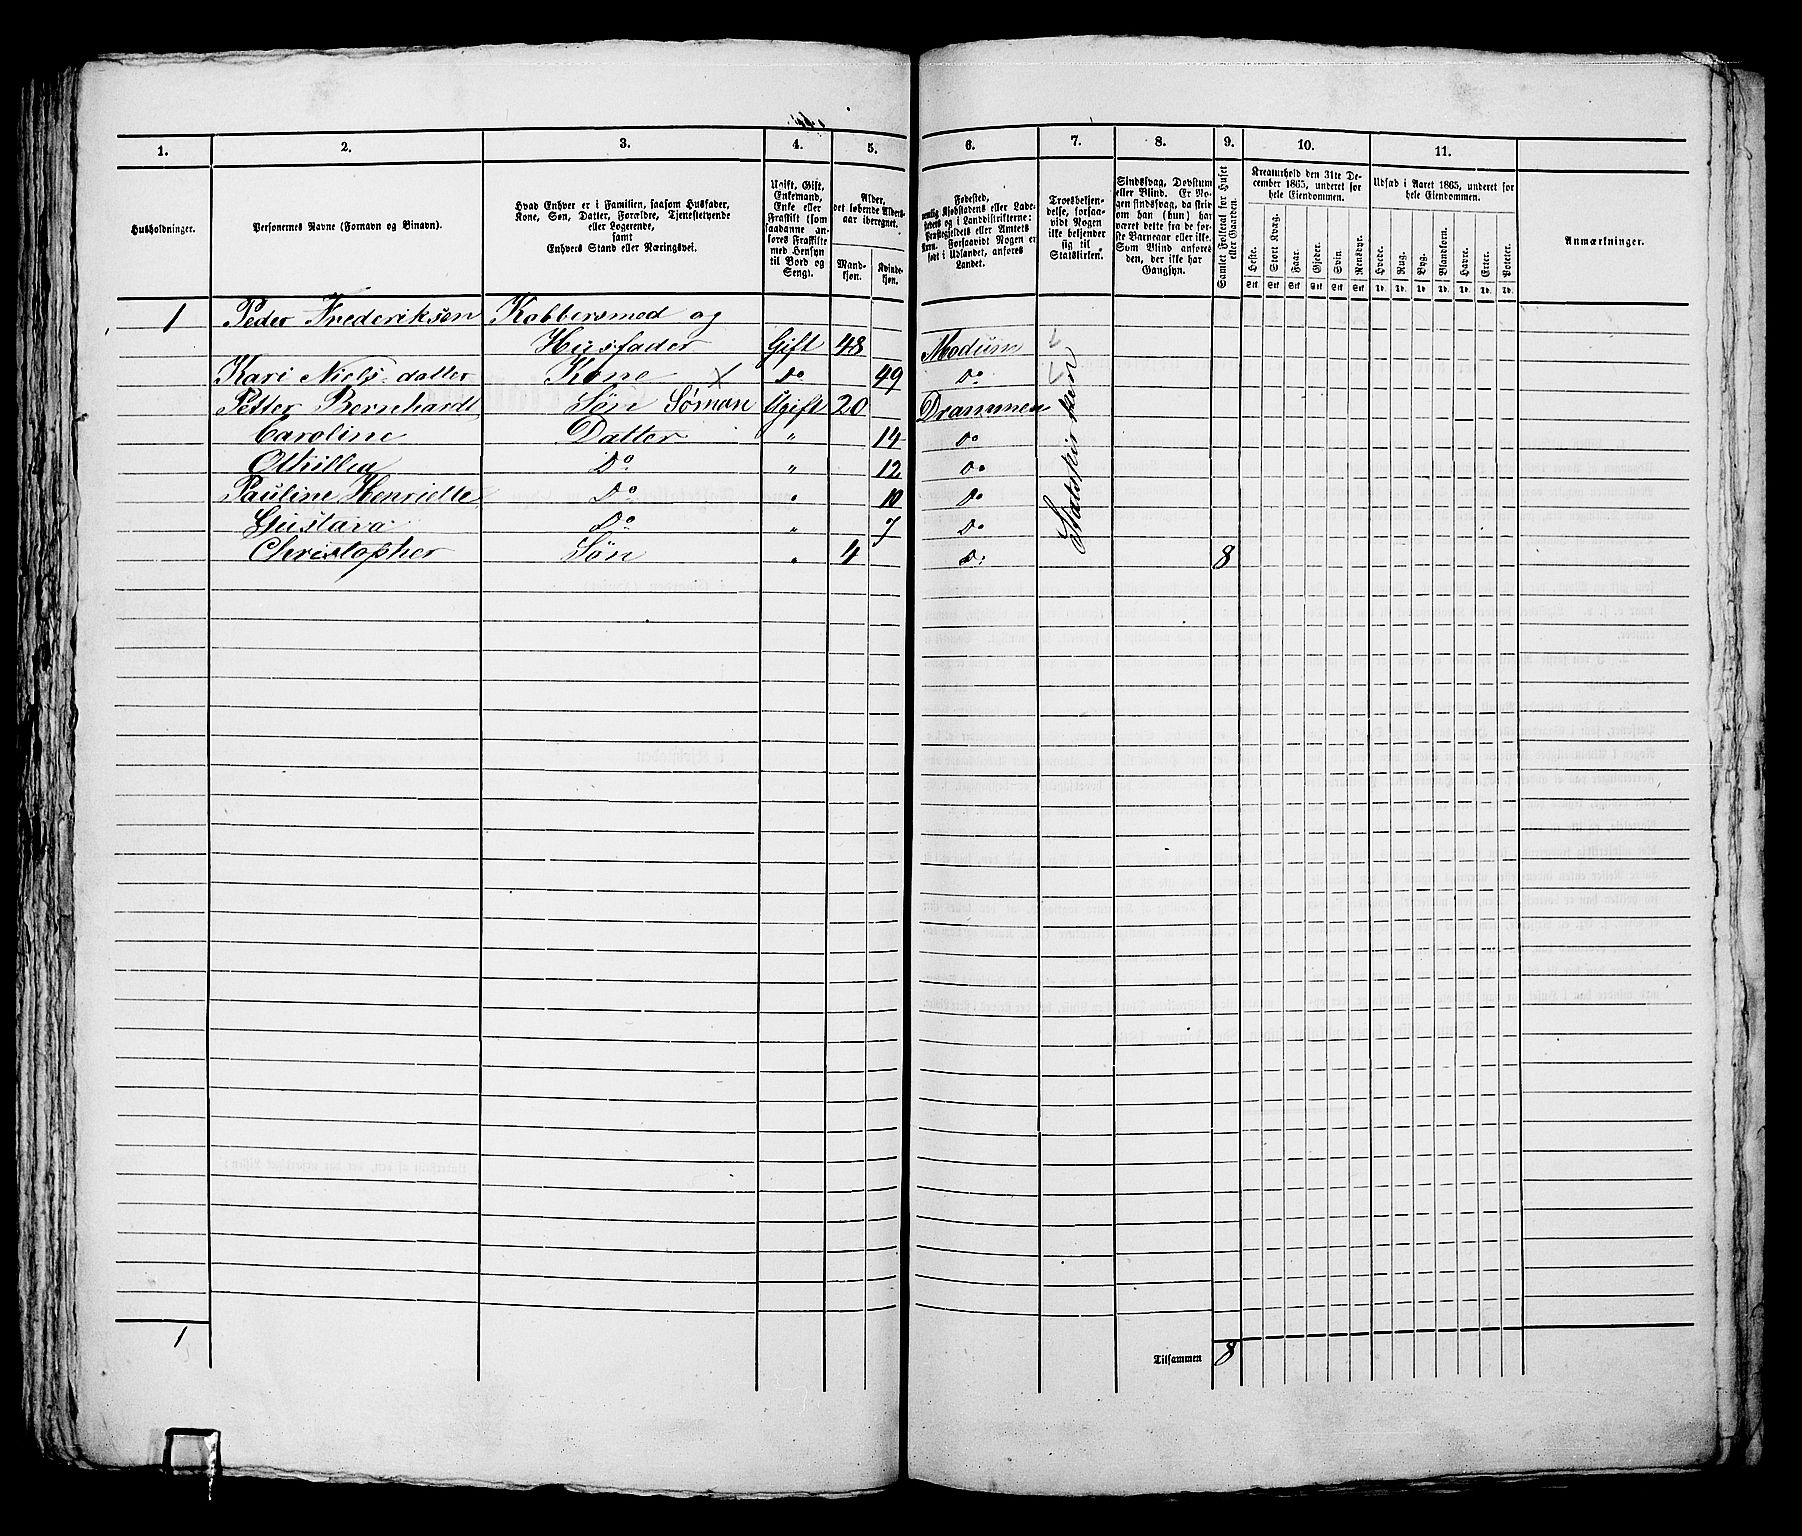 1. 2. 3. 4. 5. 6. 7. 8. 9. 10. 11.
Husholdninger.
Personernes Navne (Fornavn og Binavn).
Hvad Enhver er i Familien, saasom Husfader,
Kone, Søn, Datter, Forældre, Tjenestetyende
eller Logerende,
samt
Enhvers Stand eller Næringsvei.
Ugift, Gift,
Enkemand,
Enke eller
Fraskilt (som
saadanne an-
føres Fraskilte
med Hensyn
til Bord og
Seng).
Alder,
det løbende Alders-
aar iberegnet.
Mand-
kjøn.
Kvinde-
kjøn.
Fødested,
nemlig Kjøbstadens eller Lade-
stedets og i Landdistrikterne:
Præstegjeldets eller Amtets
Navn. Forsaavidt Nogen er
født i Udlandet, anføres
Landet.
Troesbekjen-
delse, forsaa-
vidt Nogen
ikke bekjender
sig til
Statskirken.
Sindssvag, Døvstum
eller Blind. Er No-
gen sindssvag, da skri-
ves om han (hun) har
været dette fra de før-
ste Barneaar eller ikke.
Som Blind anføres
den, der ikke har
Gangsyn.
Samlet Folketal for Huset
eller Gaarden.
Kreaturhold den 31te De-
cember 1865, underet for
hele Eiendommen.
Heste. Stort Kvæg. Faar. Gjeder. Svin. Rensdyr.
Stk Stk Stk Stk Stk Stk
Udsæd i Aaret 1865, underet for
hele Eiendommen.
Hvede. Rug. Byg. Blandkorn. Havre. Erter. Poteter.
Td. Td. Td. Td. Td. Td. Td.
Anmærkninger.
1 Peder Frederiksen Kobbersmed og
Husfader Gift 48 Modum
Kari Niels-datter Kone X Do 49 Do
Petter Bernhardt Søn Søman Ugift 20 Drammen
Caroline Datter " 14 Do
Othillia Do " 12 Do
Pauline Henriette Do " 10 Do
Gustava Do " 7 Do
Christopher Søn " 4 Do 8
Statskirken
1 Tilsammen 8